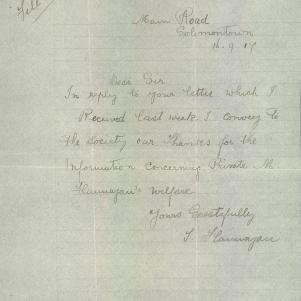 File
Main Road
Solomontown
16.9.17
Dear Sir
In reply to your letter which I
Received last week. I convey to
the Society our Thanks for the
Information concerning Private M
Flannagan's welfare
Yours Greatefully
T Flannagan